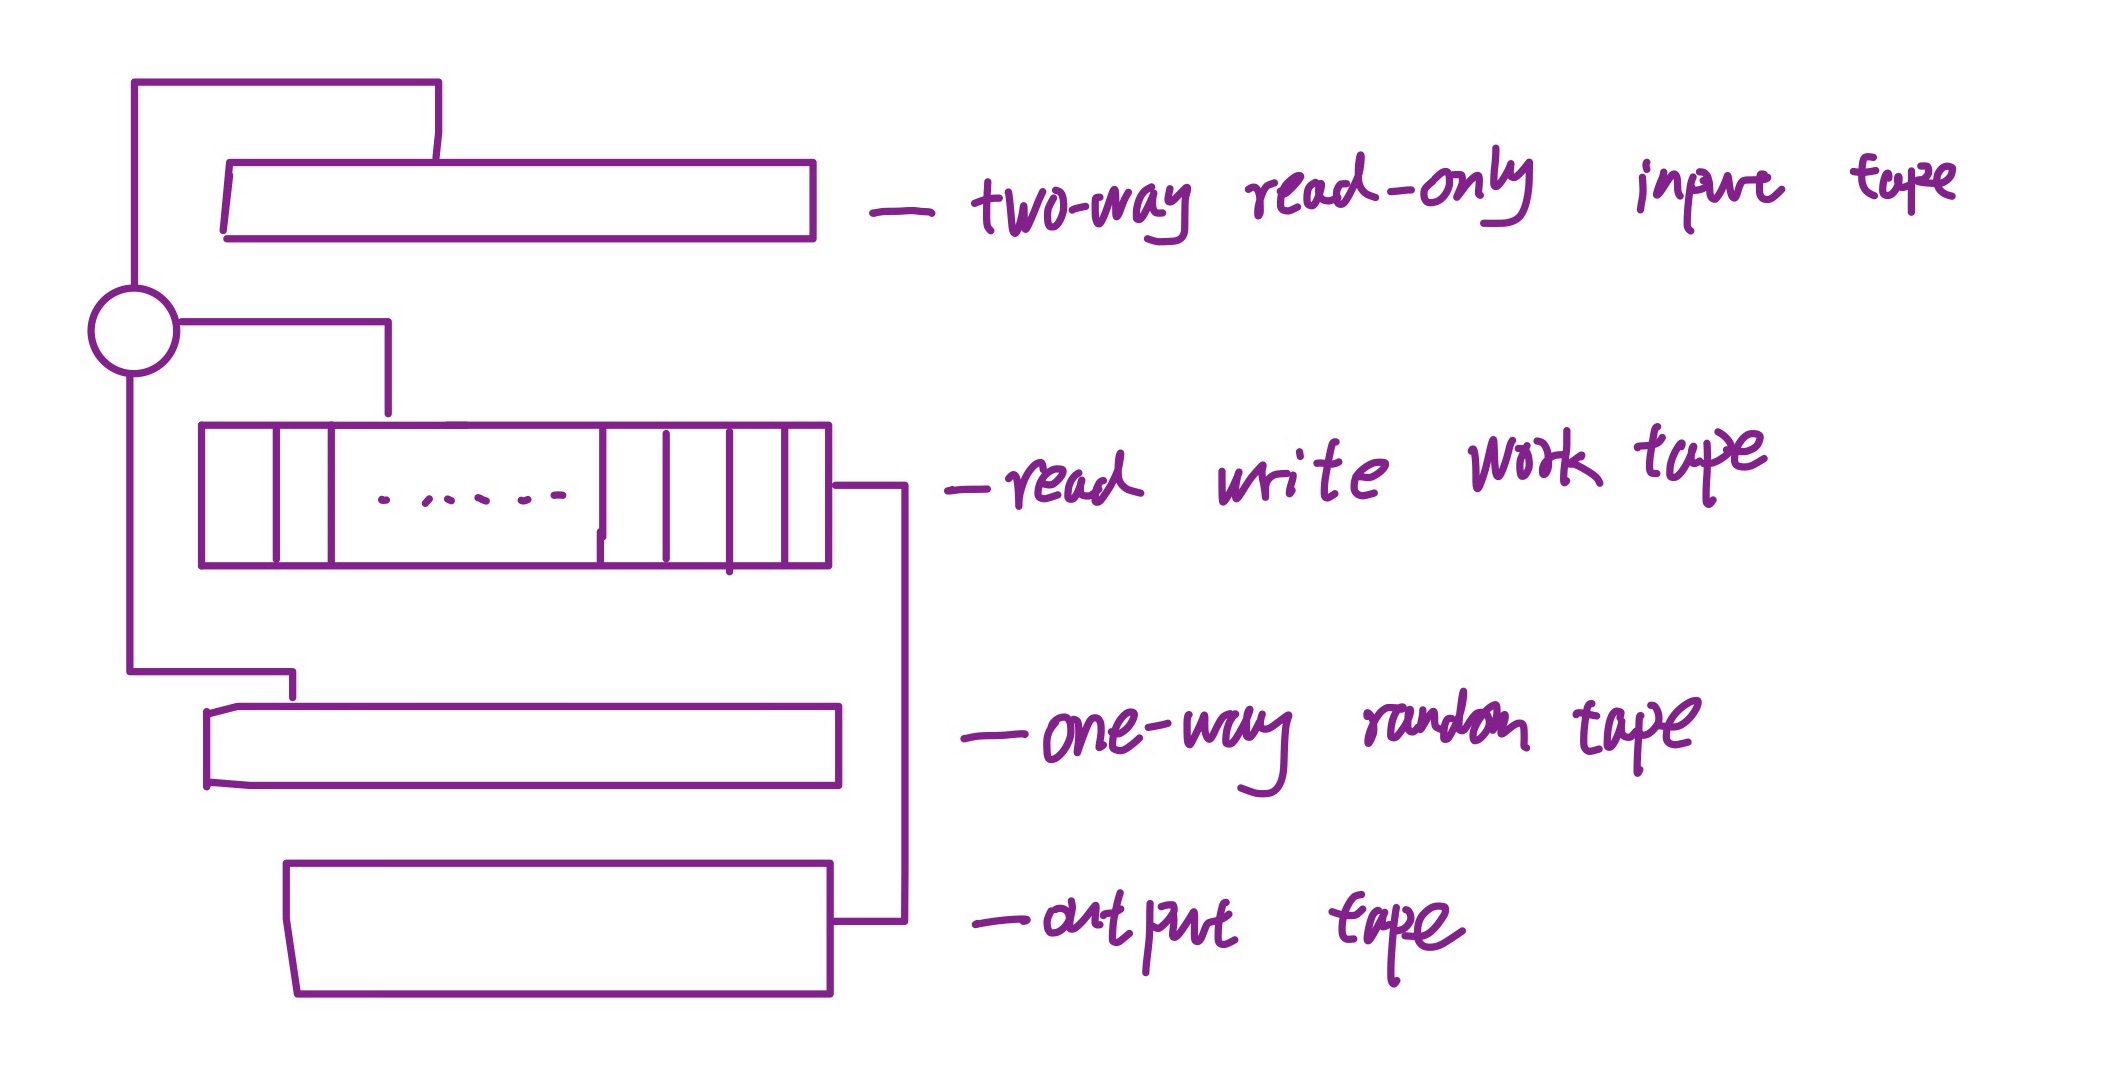 — two-way read-only input tape
— read write work tape
— one-way random tape
— output tape